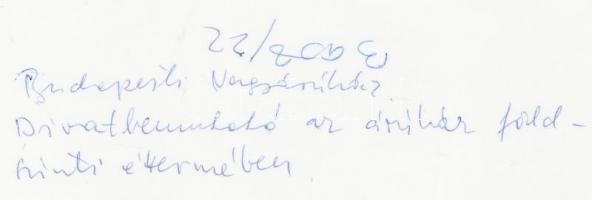 22/2003
Budapesti Nagyáruház
Divatbemutató az áruház föld-
szinti éttermében